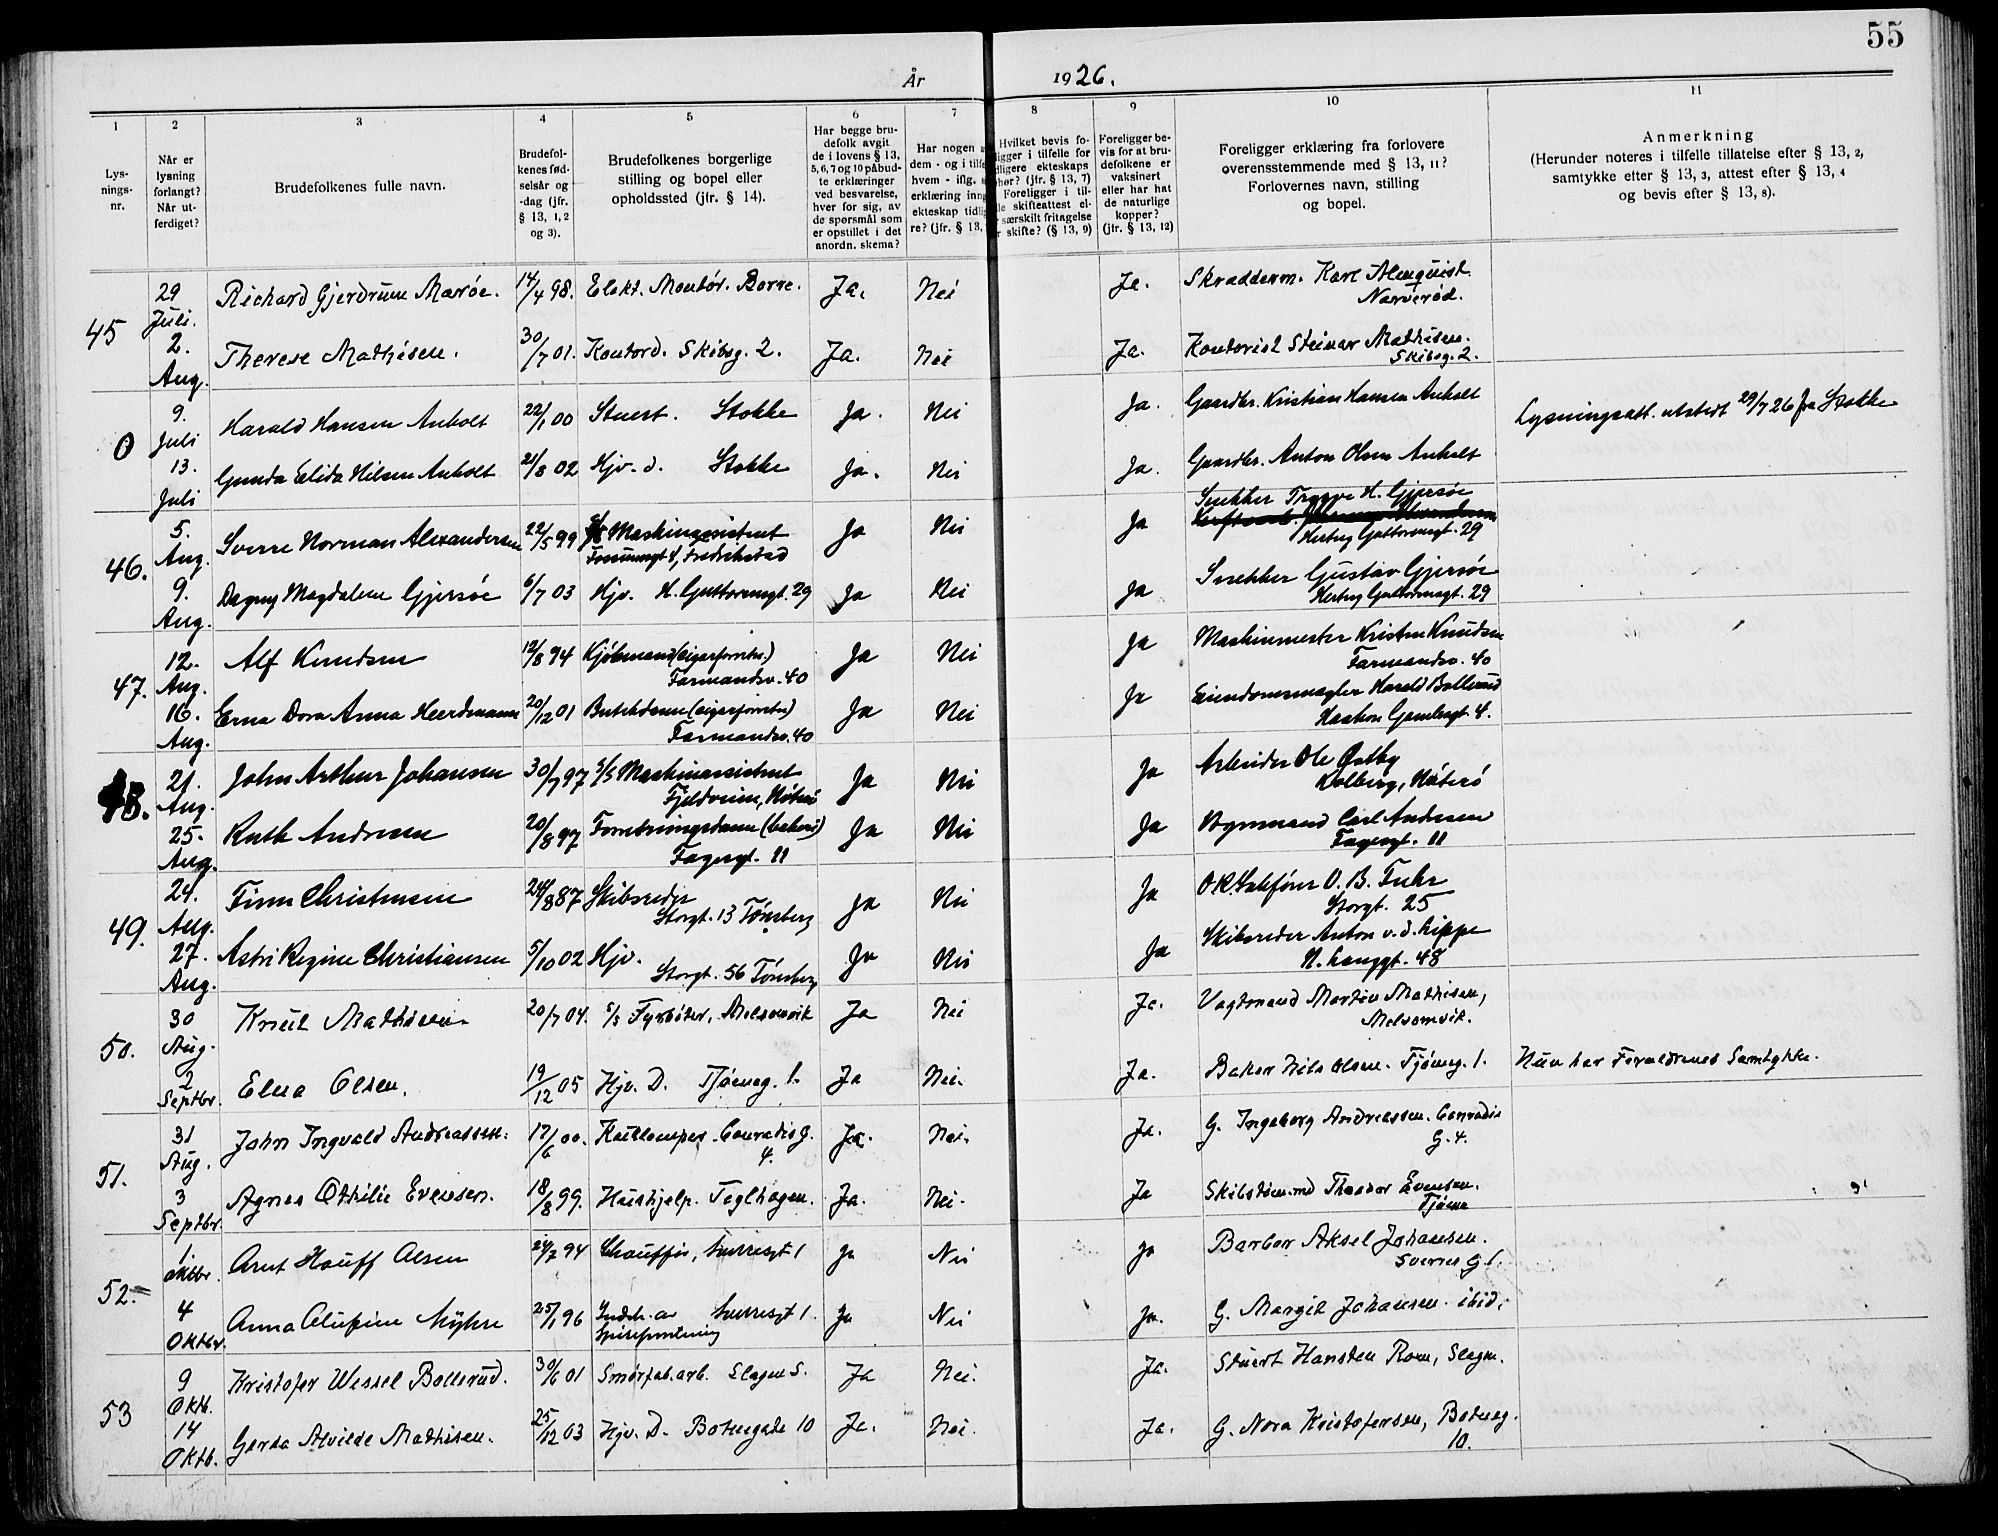 55
År 1926.
1
2
3
4
5
6
7
8
9
10
11
Lys-
nings-
nr.
Når er
lysning
forlangt?
Når ut-
ferdiget?
Brudefolkenes fulle navn.
Brudefol-
kenes fød-
selsår og
-dag (jfr.
§ 13, 1, 2
og 3).
Brudefolkenes borgerlige
stilling og bopel eller
opholdssted (jfr. § 14).
Har begge bru-
defolk avgit
de i lovens § 13,
5, 6, 7 og 10 påbud-
te erklæringer
ved besvarelse,
hver for sig, av
de spørsmål som
er opstillet i det
anordn. skema?
Har nogen a
dem - og i tilfe
hvem - iflg. s
erklæring inng
ekteskap tidlig
re? (jfr. § 13,
Hvilket bevis fo-
ligger i tilfelle for
dligere ekteskaps
hør? (jfr. § 13, 7)
Foreligger i til-
le skifteattest el-
r særskilt fritagelse
r skifte? (§ 13, 9)
Foreligger be-
vis for at bru-
defolkene er
vaksinert
eller har hat
de naturlige
kopper?
(jfr. § 13, 12)
Foreligger erklæring fra forlovere
overensstemmende med § 13, 11?
Forlovernes navn, stilling
og bopel.
Anmerkning
(Herunder noteres i tilfelle tillatelse efter § 13, 2,
samtykke efter § 13, 3, attest efter § 13, 4
og bevis efter § 13, 8).
45
29 Juli. Richard Gjerdrum Marøe. 14/4 98. Elekt. Montør. Borre. Ja. Nei Ja. Skradderm. Karl Almquist
Narverød.
2. Aug. Therese Mathisen. 30/7 01. Kontord. Skibsg. 2. Ja. Nei Ja. Kontorist Steinar Mathisen.
Skibsg. 2.
0
9. Juli Harald Hansen Anholt 22/1 00 Stuert. Stokke Ja. Nei Ja. Gaardbr. Kristian Hansen Anholt Lysningsatt. utstedt 29/7 26 fra Stokke
13. Juli Gunda Elida Nilsen Anholt 21/8 02 Hjv. d. Stokke Ja. Nei Ja. Gaardbr. Anton Olsen Anholt
46.
5. Aug. Sverre Norman Alexandersen 22/5 99 Maskinassistent Ja Nei Ja Snekker Trygve H. Gjersøe
Fredrikstad
Hertug Guttormsgt. 29
9. Aug. Dagny Magdalene Gjersøe 6/7 03 Hjv. H. Guttormsgt. 29 Ja Nei Ja Snekker Gustav Gjersøe
Hertug Guttormsgt. 29
47.
12. Aug. Alf Knudsen 12/8 94 Kjøbmand (eigarforretn.) Ja Nei Ja Maskinmester Kristen Knudsen
Farmandsv. 40
Farmandsv. 40
16. Aug. Erna Dora Anna Heerdmann 20/12 01 Butikdame (eigarforretn.) Ja Nei Ja Eiendomsmægler Harald Bollerud
Farmandsv. 40
Haakon Gamlesgt. 4.
48.
21. Aug. John Arthur Johansen 30/7 97 s/s Maskinassistent Ja Nei Ja Arbeider Ole Østby
Fjeldheim, Nøterø
Kolberg, Nøterø
25. Aug. Ruth Andresen 20/8 97 Forretningsdame (bakeri) Ja Nei Ja Carl Andersen
Fagergt. 11
Fagergt. 11
49.
24. Aug. Finn Christensen 24/8 87 Skibsreder Ja Nei Ja O.R.Sakfører O. B. Fuhr
Storgt. 13 Tønsberg
Storgt. 25
27. Aug. Astri Regine Christiansen 5/10 02 Hjv. Ja Nei Ja Skibsreder Anton v. d. Lippe
Storgt. 56 Tønsberg
N. Langgt. 48
50.
30 Aug. Knut Mathisen 20/7 04. s/s Fyrbøter, Melsomvik Ja Nei Ja. Vagtmand Martin Mathisen,
Melsomvik.
2 Septbr. Elna Olsen. 19/12 05 Hjv. D. Tjømeg. 1. Ja Nei. Ja. Baker Nils Olsen. Tjømeg. 1. Hun har Forældrenes Samtykke.
51.
31 Aug. John Ingvald Andreassen. 17/6 00. Kullemper. Conradis g. 4. Ja. Nei. Ja. G. Ingeborg Andreassen. Conradis
G. 4.
3 Septbr. Agnes Othilie Evensen. 18/8 99. Hushjelp. Teglhagen. Ja. Nei. Ja Skibstømmermd Theodor Evensen.
Tjøme
52.
1. Oktbr. Arnt Hauff Olsen 24/2 94 Chauffør, Sverresgt 1 Ja Nei Ja Barber Aksel Johansen.
Sverres G 1.
4 Oktbr. Anna Olufine Myhre 25/1 96 Indeh. av Sverresgt 1. Ja Nei Ja. G. Margit Johansen. ibid.
Spiseforretning
53
9 Oktb. Kristofer Wessel Bollerud. 30/6 01 Smørfab.arb. Slagen S. Ja Nei. Ja. Stuert Hansten Roen, Slagen.
14 Oktb. Gerda Alvilde Mathisen. 25/12 03 Hjv. D. Botnegade 10 Ja. Nei. Ja. G. Nora Kristofersen, Botneg.
10.